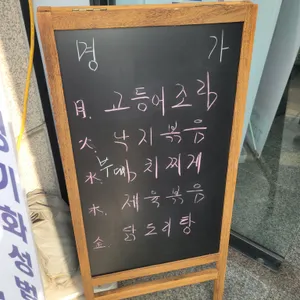 명 가
月. 고등어조림
火. 낙지볶음
水. 부대찌개
木. 제육볶음
金. 닭도리탕
경기화성범